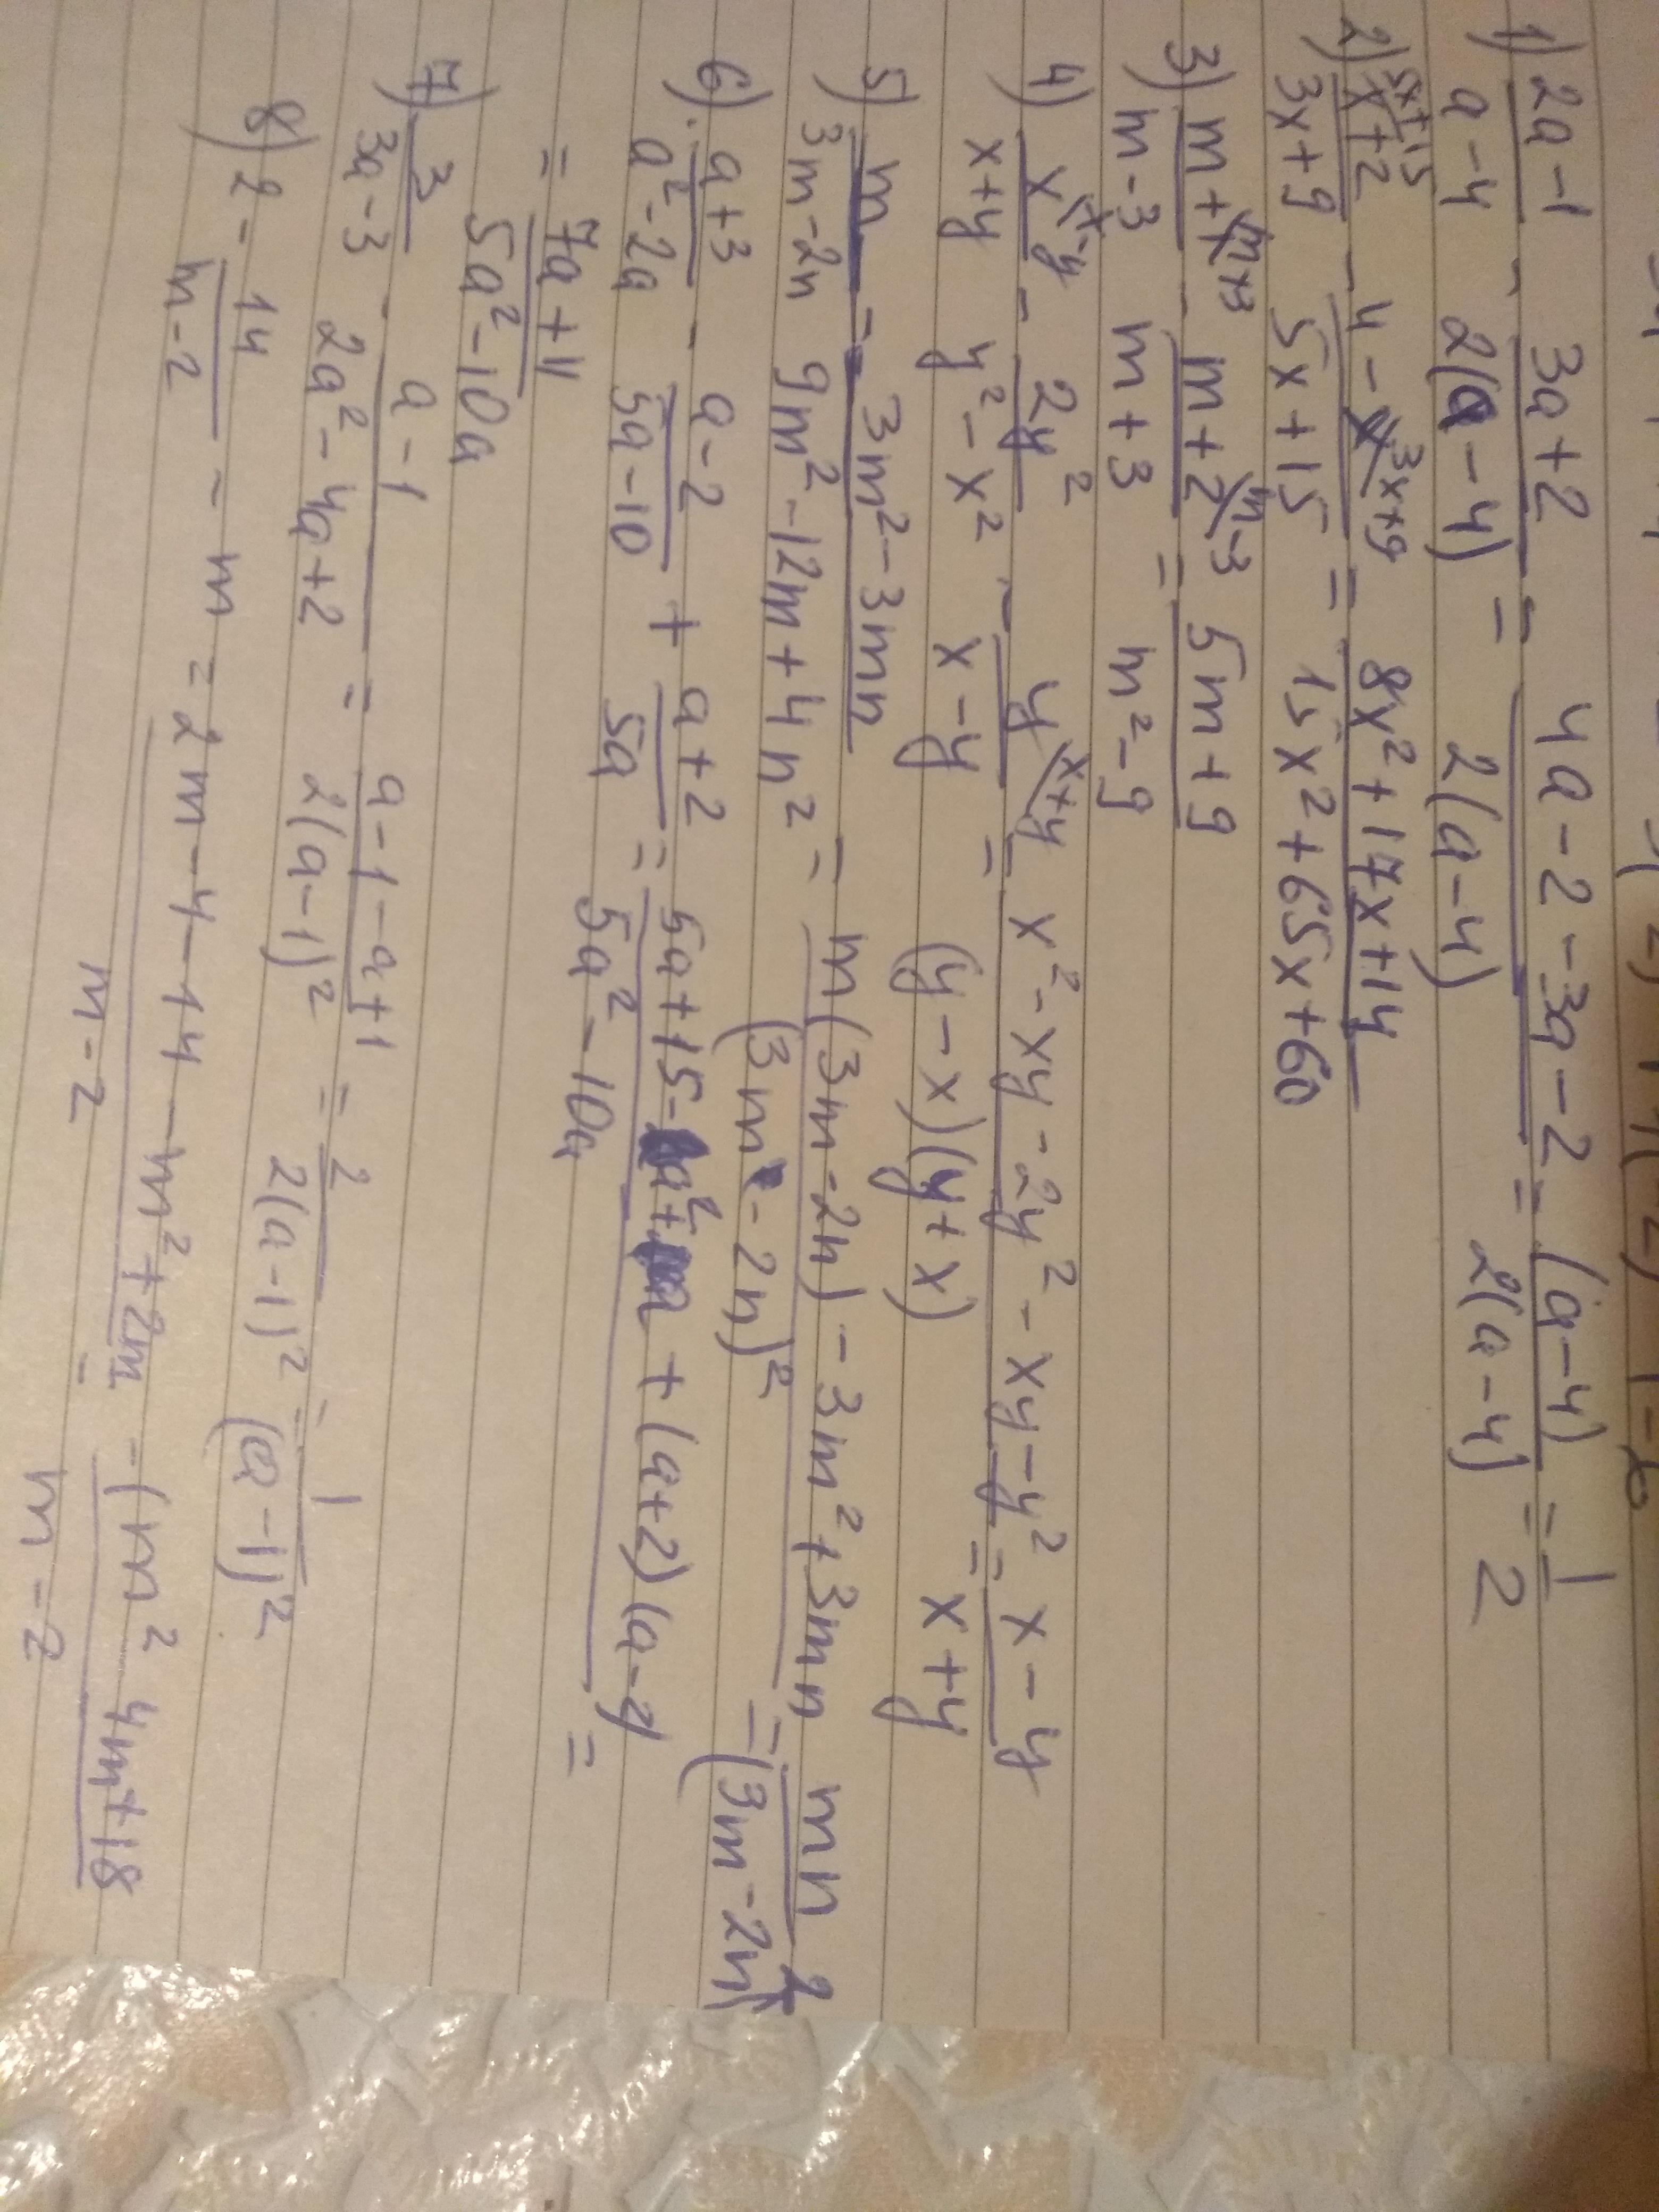 1) (2a-1)/(a-4) - (3a+2)/(2(a-4)) = (4a-2-3a-2)/(2(a-4)) = (a-4)/(2(a-4)) = 1/2
2) (x+2)/(3x+9) \5x+15 - (4-x)/(5x+15) \3x+9 = (8x²+17x+14)/(15x²+65x+60)
3) (m+x)/(m-3) \m+3 - (m+2)/(m+3) \m-3 = (5m+9)/(m²-9)
4) x/(x+y) \x-y - 2y²/(y²-x²) - y/(x-y) \x+y = (x²-xy-2y²-xy-y²)/((y-x)(y+x)) = (x-y)/(x+y)
5) m/(3m-2n) - (3m²-3mn)/(9m²-12m+4n²) = (m(3m-2n)-3m²+3mn)/(3m-2n)² = mn/(3m-2n)²
6) (a+3)/(a²-2a) - (a-2)/(5a-10) + (a+2)/(5a) = (5a+15-a²+ + (a+2)(a-2))/(5a²-10a) =
= (7a+11)/(5a²-10a)
7) 3/(3a-3) - (a-1)/(2a²-4a+2) = (a-1-a+1)/(2(a-1)²) = 2/(2(a-1)²) = 1/(a-1)²
8) 2 - 14/(m-2) - m = (2m-4-14-m²+2m)/(m-2) = -(m² 4m+18)/(m-2)